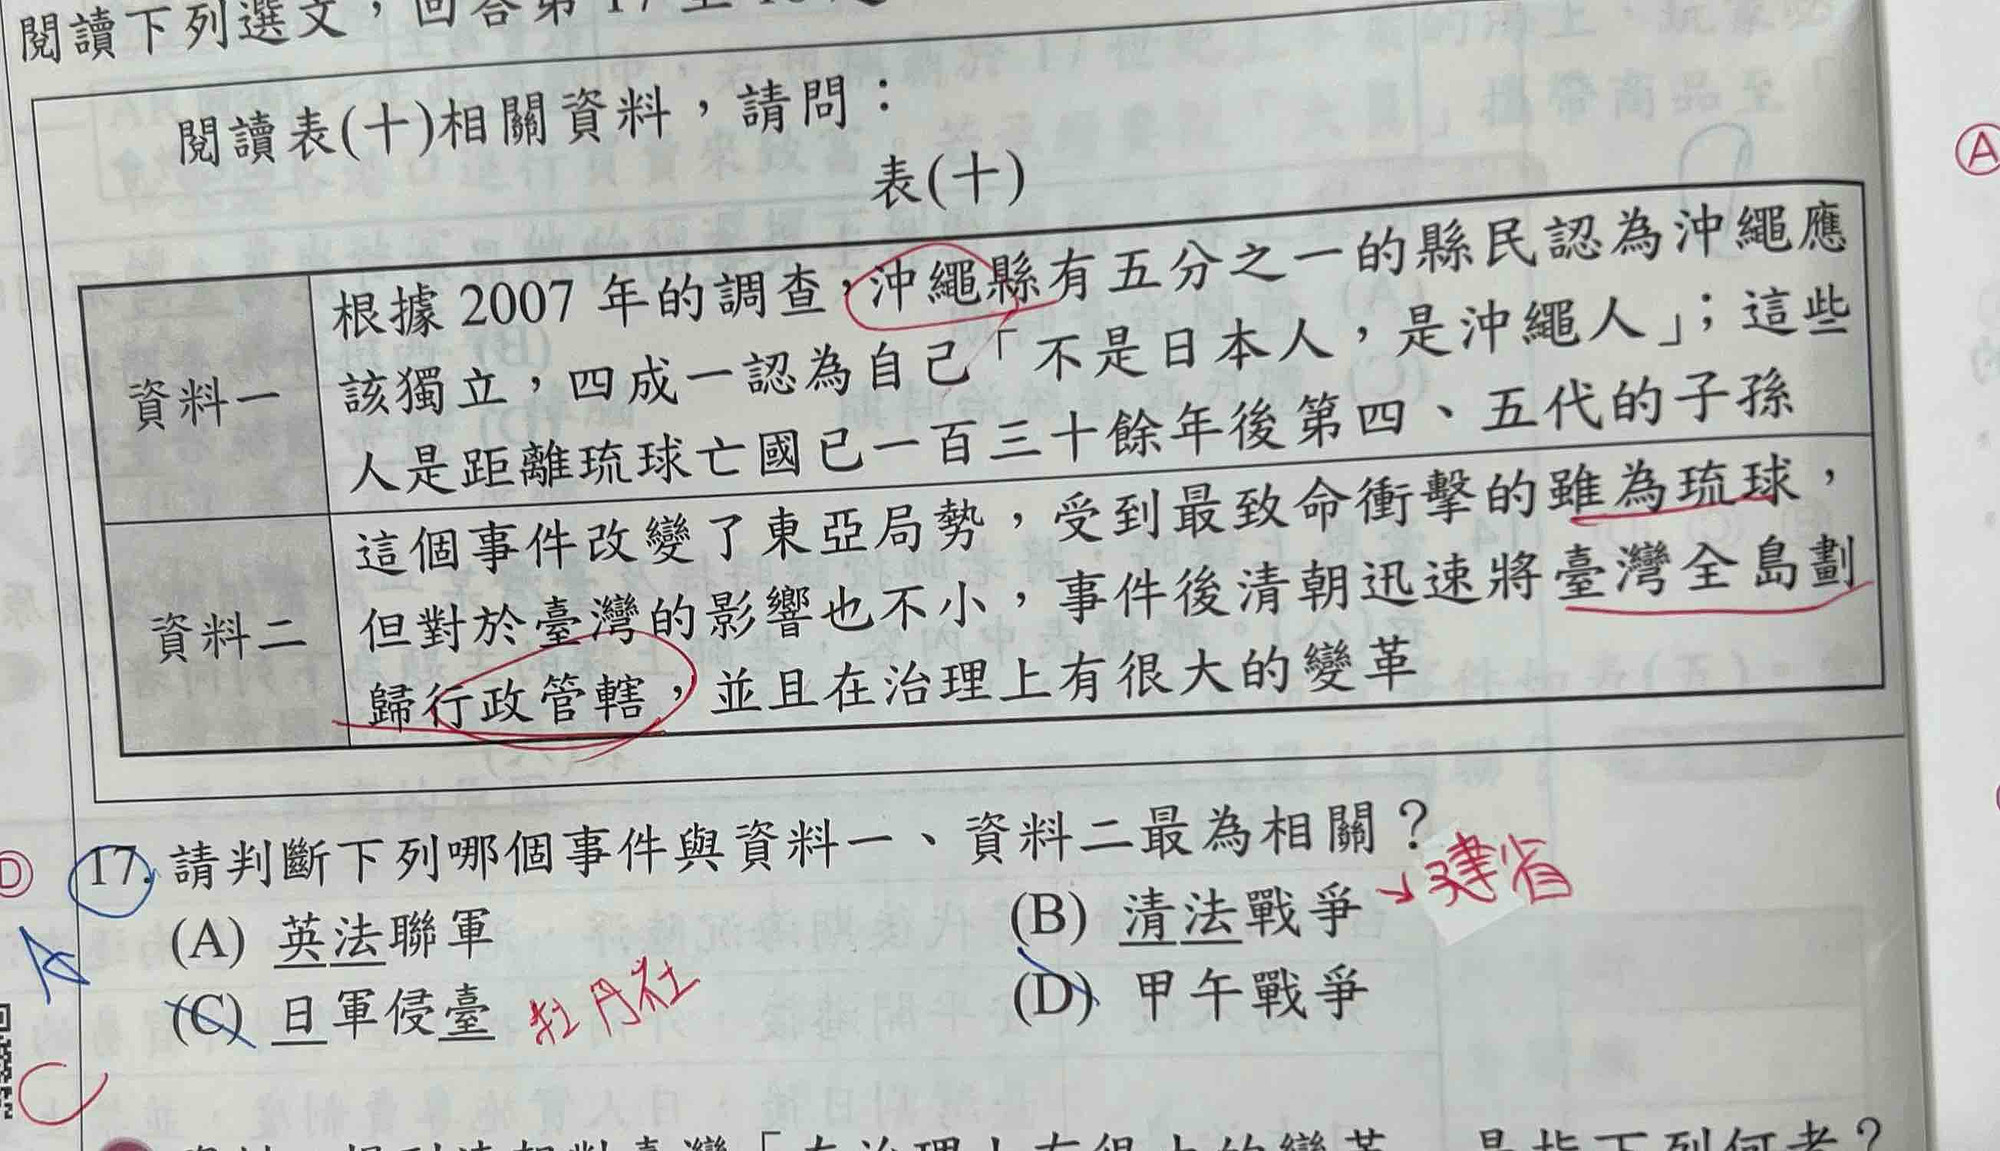 閱讀下列選文，回答第17至18題
閱讀表(十)相關資料，請問：
表(十)
資料一
根據2007年的調查，沖繩縣有五分之一的縣民認為沖繩應
該獨立，四成一認為自己「不是日本人，是沖繩人」；這些
人是距離琉球亡國已一百三十餘年後第四、五代的子孫
資料二
這個事件改變了東亞局勢，受到最致命衝擊的雖為琉球，
但對於臺灣的影響也不小，事件後清朝迅速將臺灣全島劃
歸行政管轄，並且在治理上有很大的變革
D
17. 請判斷下列哪個事件與資料一、資料二最為相關？
(A) 英法聯軍
(B) 清法戰爭 → 建省
(C) 日軍侵臺 牡丹社
(D) 甲午戰爭
C
A